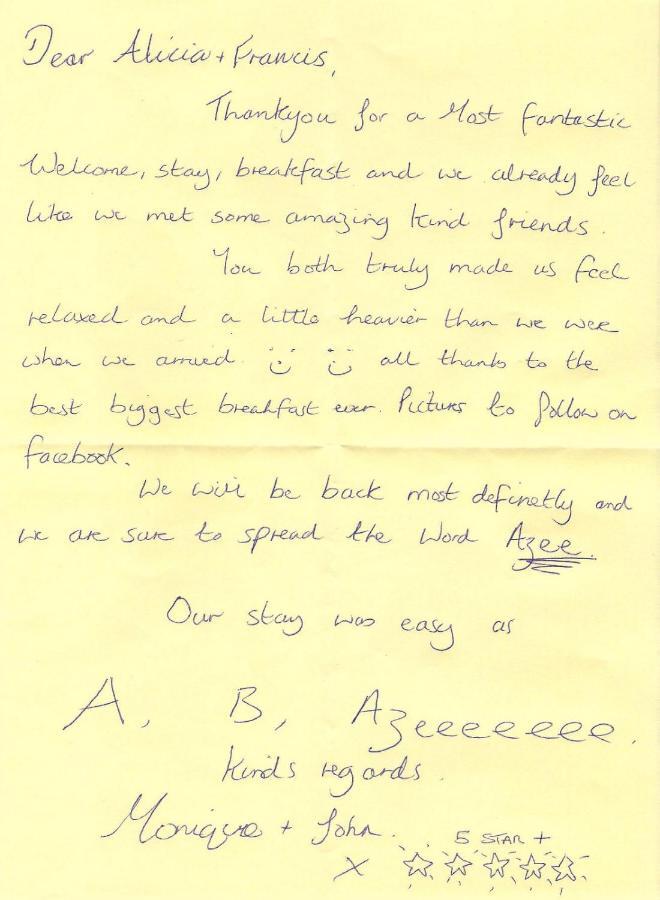 Dear Alicia + Francis,
Thankyou for a Most fantastic
Welcome, stay, breakfast and we already feel
like we met some amazing kind friends.
You both truly made us feel
relaxed and a little heavier than we were
when we arrived :) :) all thanks to the
best biggest breakfast ever. Pictures to follow on
facebook.
We will be back most definetly and
we are sure to spread the Word Azee.
Our stay was easy as
A, B, Azeeeeeee.
Kinds regards.
Monique + John.
5 STAR +
x ☆☆☆☆☆